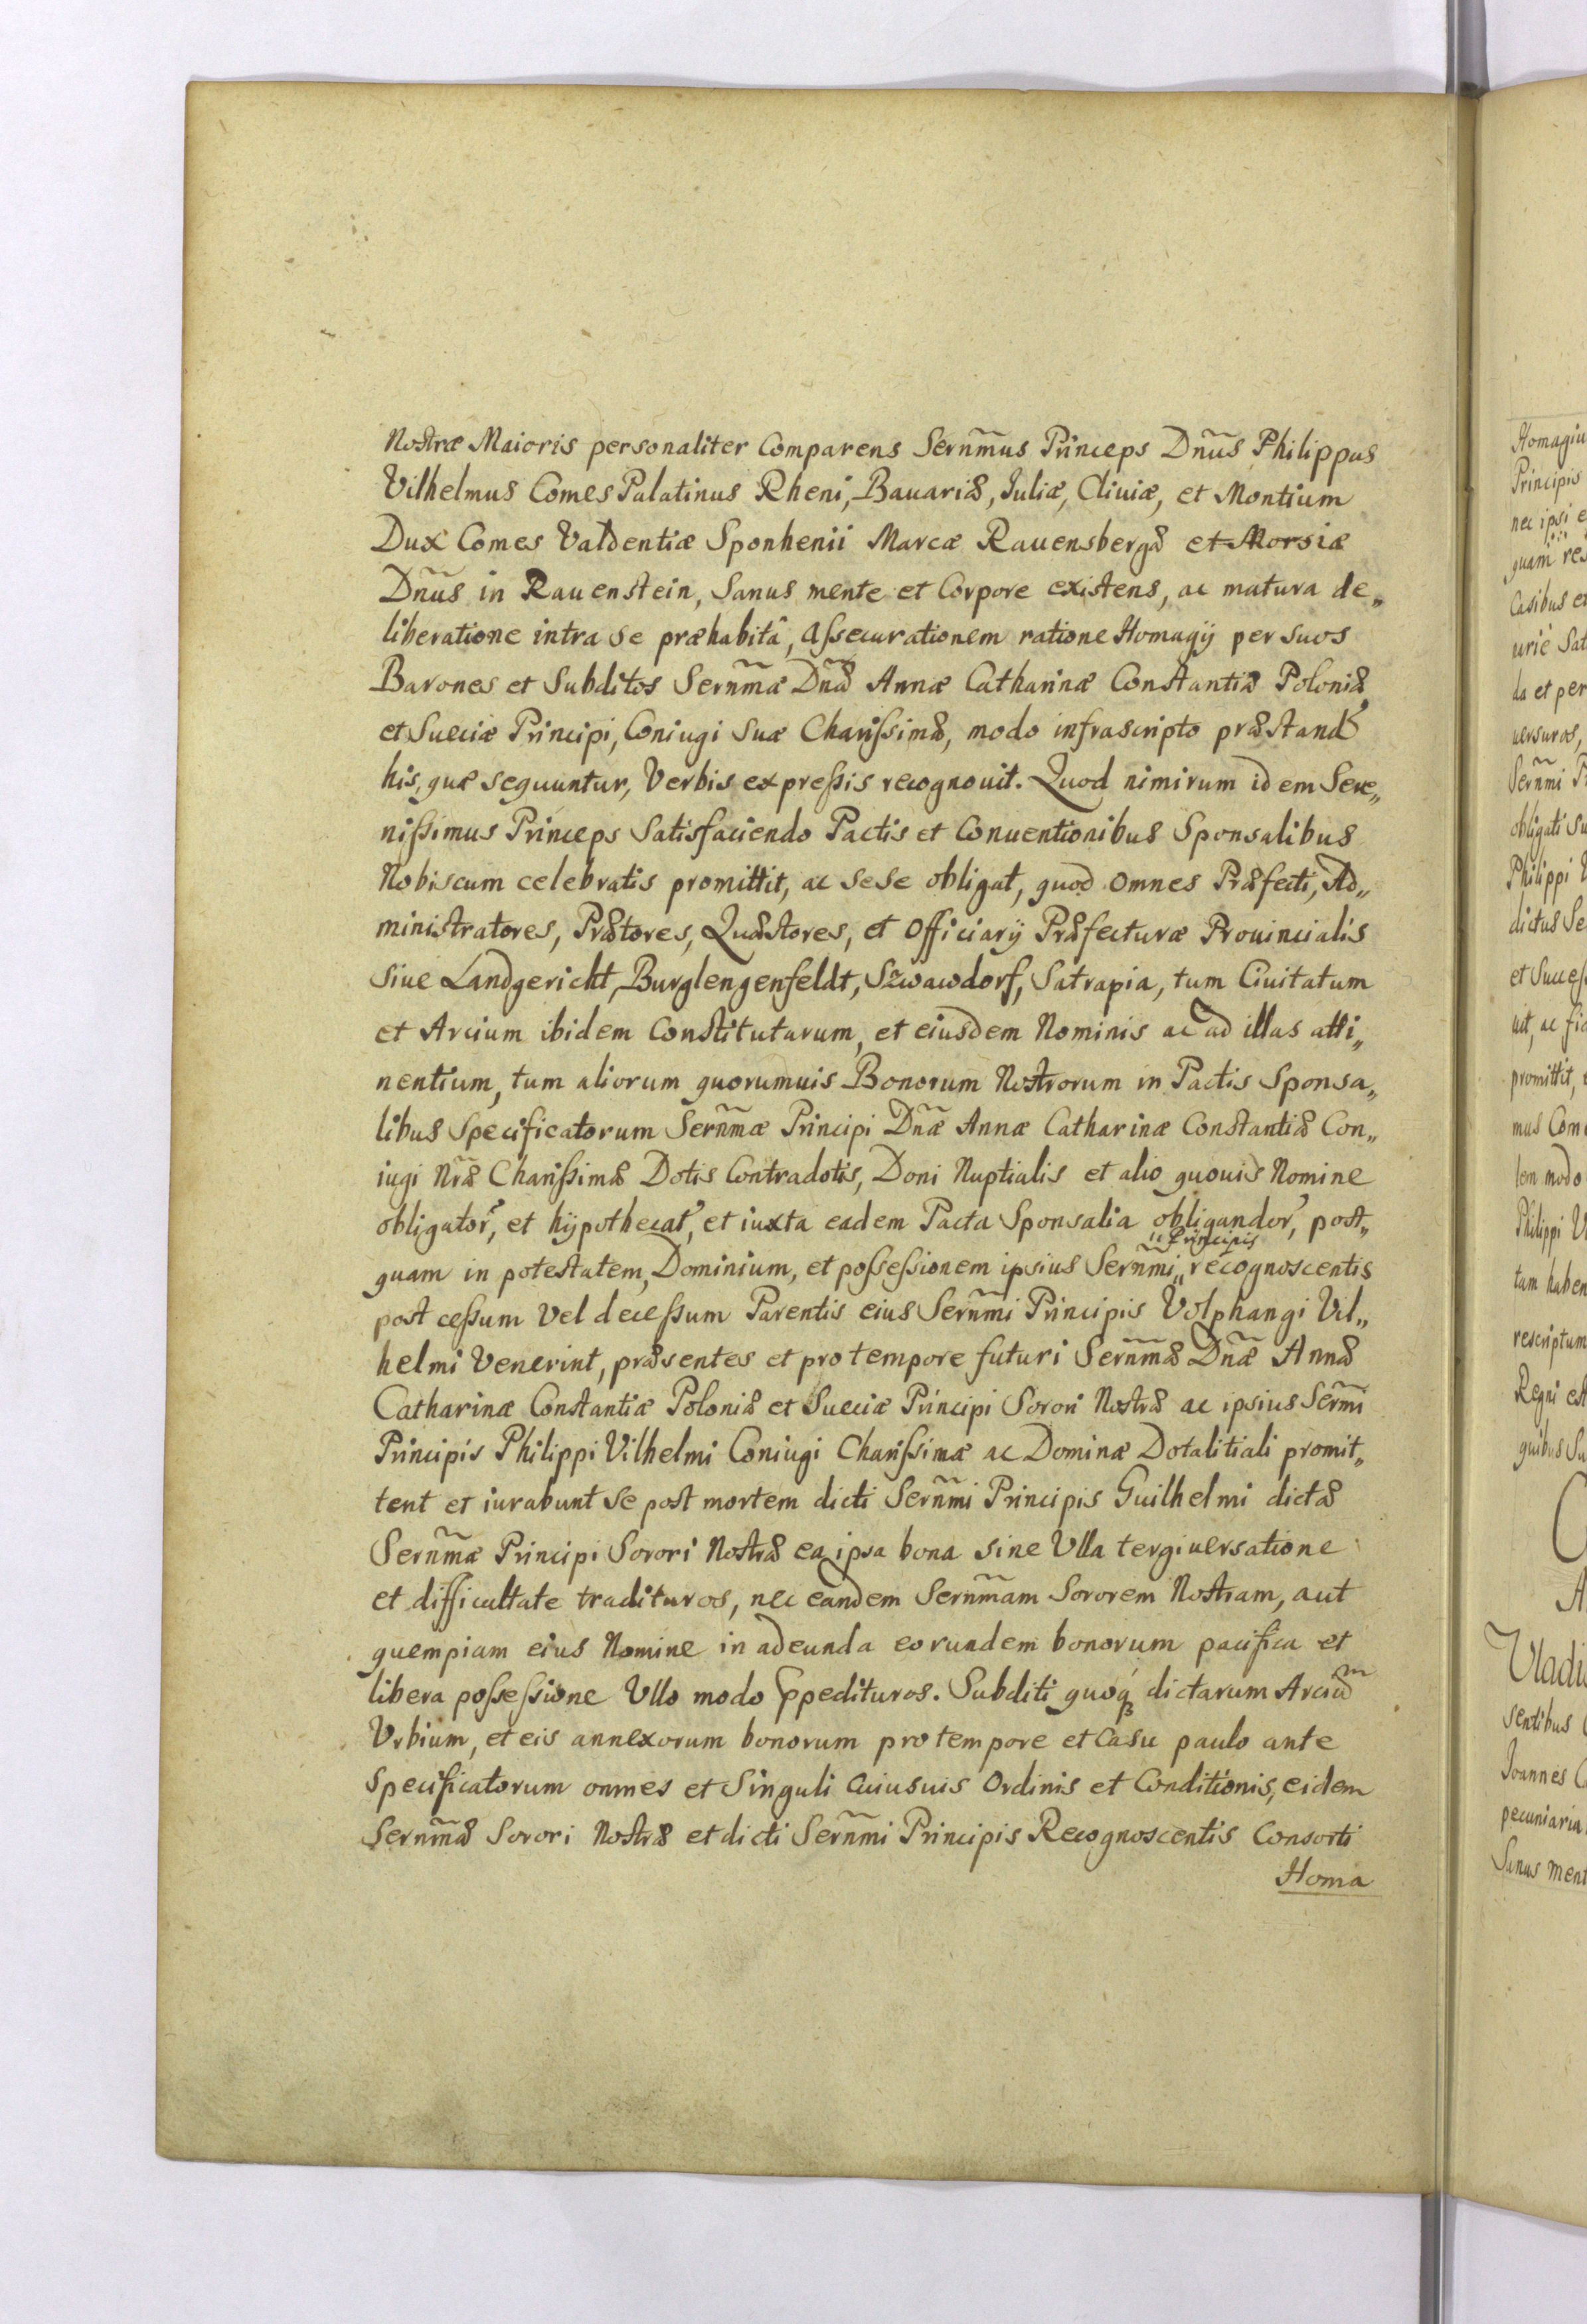 Nostræ Maioris personaliter Comparens Serñmus Princeps Dñus Philippus
Vilhelmus Comes Palatinus Rheni, Bauariæ, Juliæ, Cliuiæ, et Montium
Dux Comes Valdentiæ Sponhenii Marcæ Rauensbergæ et Morsiæ
Dñus in Rauenstein, Sanus mente et Corpore existens, ac matura de„
liberatione intra se præhabitâ, Assecurationem ratione Homagÿ per suos
Barones et Subditos Serñmæ Dñæ Annæ Catharinæ Constantiæ Poloniæ
et Sueciæ Principi, Coniugi Suæ Charissimæ, modo infrascripto præstand'
his, quæ sequuntur, Verbis expressis recognouit. Quod nimirum idem Sere„
nissimus Princeps Satisfaciendo Pactis et Conuentionibus Sponsalibus
Nobiscum celebratis promittit, ac sese obligat, quod omnes Præfecti, Ad„
ministratores, Prætores, Quæstores, et Officiarÿ Præfecturæ Prouincialis
siue Landgericht, Burglengenfeldt, Szwawdorf, Satrapia, tum Ciuitatum
et Arcium ibidem Constitutarum, et eiusdem Nominis ac ad illas atti„
nentium, tum aliorum quorumuis Bonorum Nostrorum in Pactis Sponsa„
libus Specificatorum Serñmæ Principi Dñæ Annæ Catharinæ Constantiæ Con„
iugi Nræ Charissimæ Dotis Contradotis, Doni Nuptialis et alio quouis Nomine
obligator', et hÿpothecat', et iuxta eadem Pacta Sponsalia obligandor', post„
quam in potestatem, Dominium, et possessionem ipsius Serñmi „Principis recognoscentis
post cessum vel decessum Parentis eius Serñmi Principis Volphangi Vil„
helmi Venerint, præsentes et pro tempore futuri Serñmæ Dñæ Annæ
Catharinæ Constantiæ Poloniæ et Sueciæ Principi Sorori Nostræ ac ipsius Serñmi
Principis Philippi Vilhelmi Coniugi Charissimæ ac Dominæ Dotalitiali promit„
tent et iurabunt se post mortem dicti Serñmi Principis Guilhelmi dictæ
Serñmæ Principi Sorori Nostræ ea ipsa bona sine Vlla tergiuersatione
et difficultate tradituros, nec eandem Serñmam Sororem Nostram, aut
quempiam eius Nomine in adeunda eorundem bonorum pacifica et
libera possessione Vllo modo Ippedituros. Subditi quoq dictarum Arciũm
Vrbium, et eis annexorum bonorum pro tempore et Casu paulo ante
Specificatorum omnes et Singuli Cuiusuis Ordinis et Conditionis, eidem
Serñmæ Sorori Nostræ et dicti Serñmi Principis Recognoscentis Consorti
Homa
Homagiu
Principis
nec ipsi e
quam res
Casibus e
urie Sat
da et per
uersuros,
Serñmi P
obligati Su
Philippi V
dictus Se
et Success
uit, ac fi
promittit,
mus Com
lem modo
Philippi V
tam haben
rescriptum
Regni est
quibus Su
C
A
Vladis
sentibus
Joannes C
pecuniaria
Sanus ment